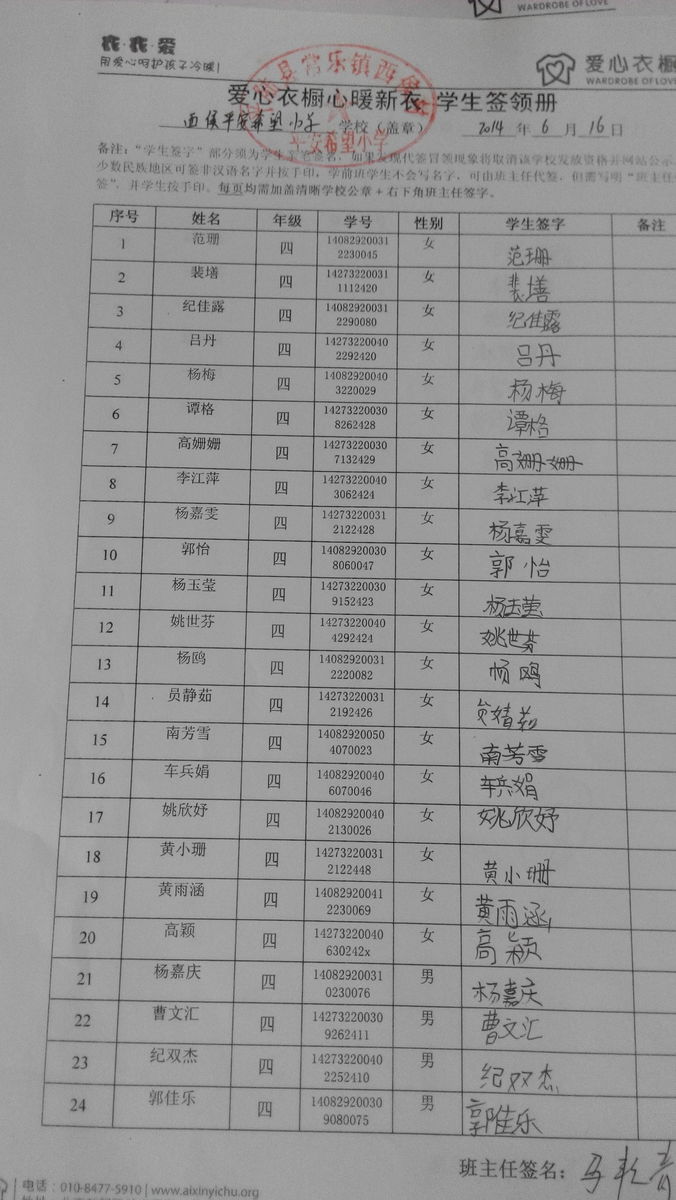 WARDROBE OF LOVE
衣·衣·爱
用爱心呵护孩子冷暖!
爱心衣橱
WARDROBE OF LOVE
爱心衣橱心暖新衣 学生签领册
西侯平安希望小学 学校（盖章） 2014 年 6 月 16 日
县常乐镇西
平安希望小学
备注："学生签字"部分须为学生亲笔签名，如果发现代签冒领现象将取消该学校发放资格并网站公示。
少数民族地区可签非汉语名字并按手印。学前班学生不会写名字，可由班主任代签，但需写明"班主任
签"，并学生按手印。每页均需加盖清晰学校公章+右下角班主任签字。
序号 姓名 年级 学号 性别 学生签字 备注
1 范珊 四 140829200312230045 女 范珊
2 裴墡 四 142732200311112420 女 裴墡
3 纪佳露 四 140829200312290080 女 纪佳露
4 吕丹 四 142732200402292420 女 吕丹
5 杨梅 四 140829200403220029 女 杨梅
6 谭格 四 142732200308262428 女 谭格
7 高姗姗 四 142732200307132429 女 高姗姗
8 李江萍 四 142732200403062424 女 李江萍
9 杨嘉雯 四 142732200312122428 女 杨嘉雯
10 郭怡 四 140829200308060047 女 郭怡
11 杨玉莹 四 142732200309152423 女 杨玉莹
12 姚世芬 四 142732200404292424 女 姚世芬
13 杨鸥 四 140829200312220082 女 杨鸥
14 员静茹 四 142732200312192426 女 员婧茹
15 南芳雪 四 140829200504070023 女 南芳雪
16 车兵娟 四 140829200406070046 女 车兵娟
17 姚欣妤 四 140829200402130026 女 姚欣妤
18 黄小珊 四 142732200312122448 女 黄小珊
19 黄雨涵 四 140829200412230069 女 黄雨涵
20 高颖 四 14273220040630242x 女 高颖
21 杨嘉庆 四 140829200310230076 男 杨嘉庆
22 曹文汇 四 142732200309262411 男 曹文汇
23 纪双杰 四 142732200402252410 男 纪双杰
24 郭佳乐 四 140829200309080075 男 郭佳乐
班主任签名：马
电话：010-8477-5910 | www.aixinyichu.org